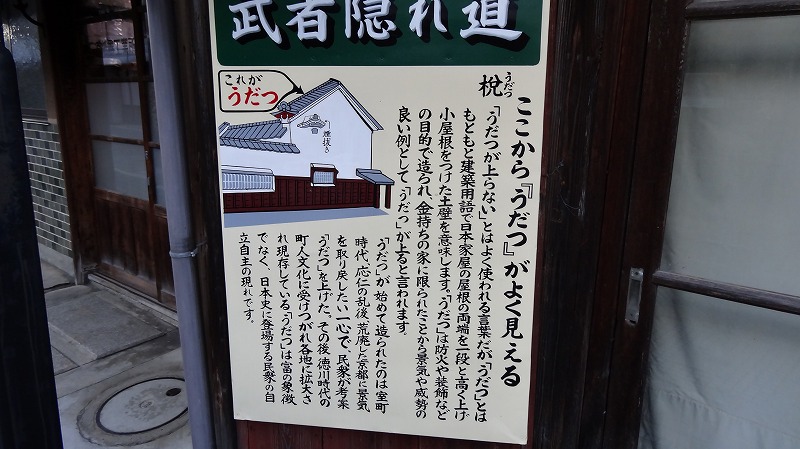 武者隠れ道
ここから『うだつ』がよく見える
梲
うだつ
「うだつが上らない」とはよく使われる言葉だが「うだつ」とは
もともと建築用語で日本家屋の屋根の両端を一段と高く上げ
小屋根をつけた土壁を意味します。「うだつ」は防火や装飾など
の目的で造られ、金持ちの家に限られたことから景気や威勢の
良い例として「うだつ」が上ると言われます。
「うだつ」が始めて造られたのは室町
時代、応仁の乱後、荒廃した京都に景気
を取り戻したい一心で、民衆が考案
「うだつ」を上げた。その後徳川時代の
町人文化に受けつがれ各地に拡大さ
れ現存している「うだつ」は富の象徴
でなく、日本史に登場する民衆の自
立自主の現れです。
これが
うだつ
煙抜き